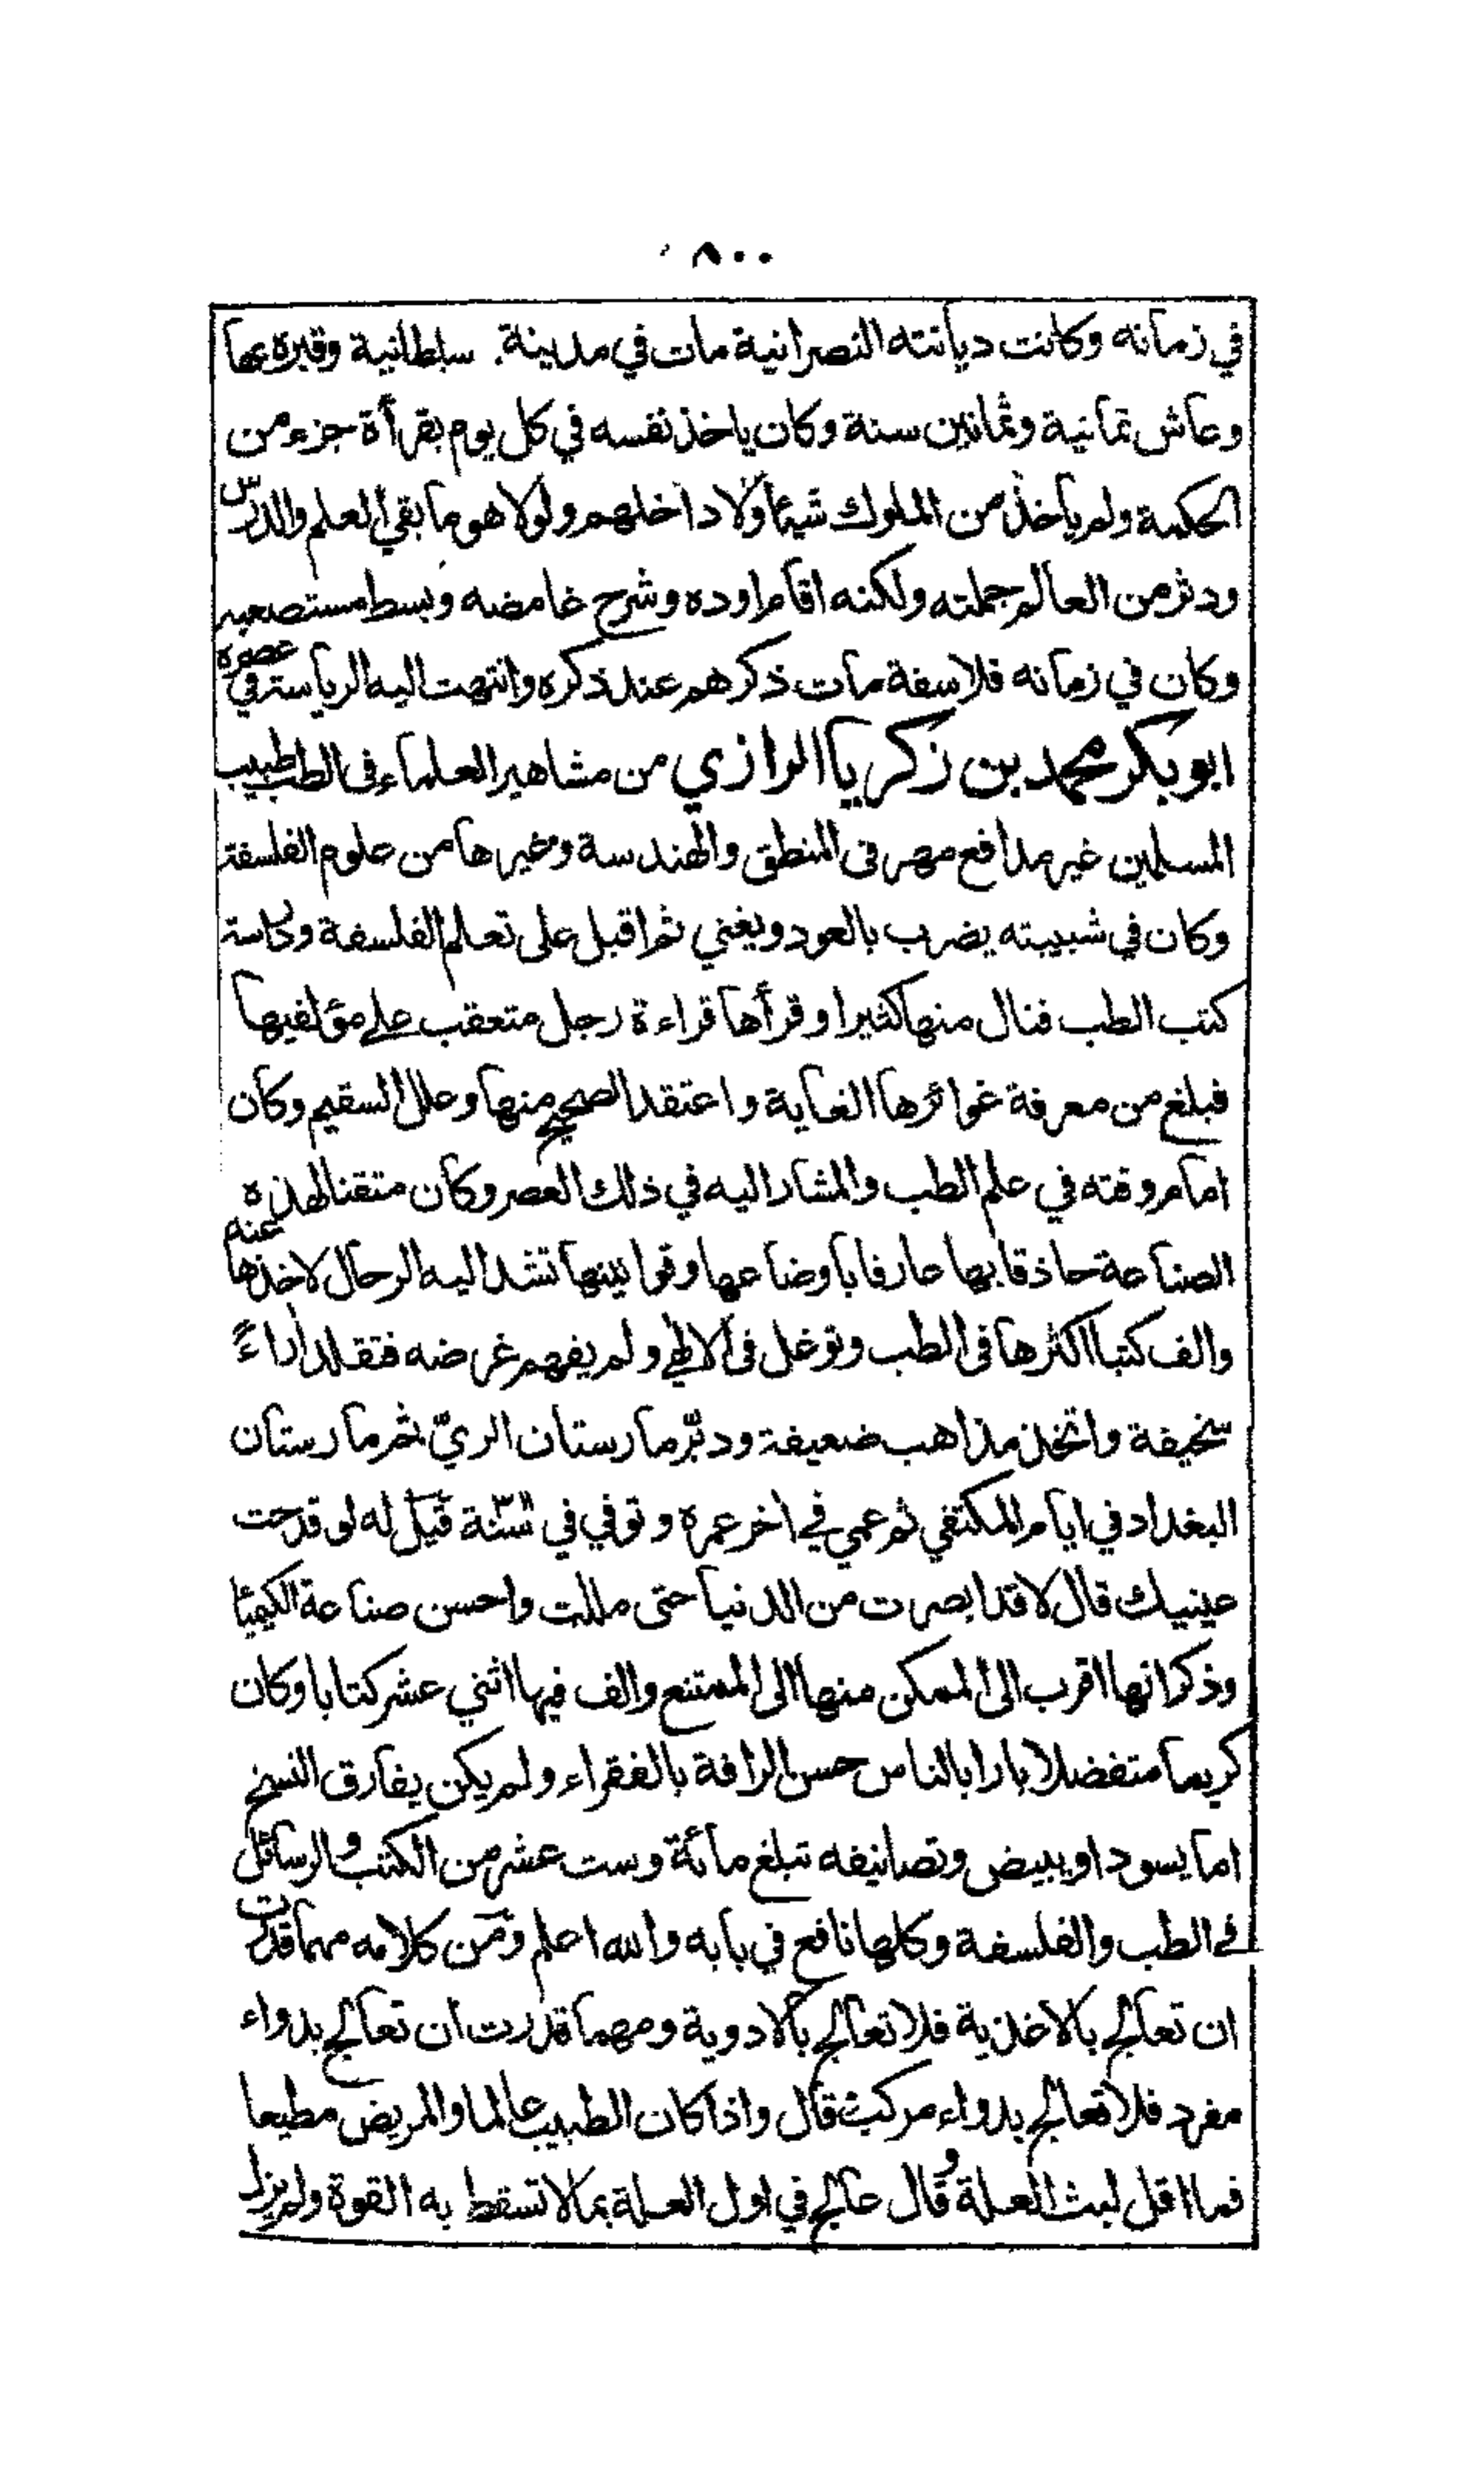 ٨٠٠
في زمانه وكانت ديانته النصرانية مات في مدينة. سلطانية وقبره بها
وعاش ثمانية وثمانين سنة وكان ياخذ نفسه في كل يوم بقرأة جزء من
الحكمة ولم يأخذ من الملوك شيئا ولا داخلهم ولولا هو ما بقي العلم والدرس
ودثر من العالم جملته ولكنه اقام اوده وشرح غامضه وبسط مستصعبه
وكان في زمانه فلاسفة مات ذكرهم عند ذكره وانتهت اليه الرياسة في عصره
ابو بكر محمد بن زكريا الرازي من مشاهير العلماء في الطب طبيب
المسلمين غير مدافع مهر في المنطق والهندسة وغيرها من علوم الفلسفة
وكان في شبيبته يضرب بالعود ويغني ثم اقبل على تعلم الفلسفة ودراسة
كتب الطب فنال منها كثيرا وقرأها قراءة رجل متعقب على مؤلفيها
فبلغ من معرفة غوائرها الغاية واعتقد الصحيح منها وعلل السقيم وكان
امام وقته في علم الطب والمشار اليه في ذلك العصر وكان متقنا لهذه
الصناعة حاذقا بها عارفا باوضاعها وقوانينها تشد اليه الرحال لاخذها عنه
والف كتبا اكثرها في الطب وتوغل في الالهي ولم يفهم غرضه فتقلد اراءً
سخيفة واتخذ مذاهب ضعيفة ودبّر مارستان الريّ ثم مارستان
البغداد في ايام المكتفي ثم عمي في اخر عمره وتوفي في سنة قيل له لو قدحت
عينيك قال لا قد ابصرت من الدنيا حتى مللت واحسن صناعة الكيميا
وذكر انها اقرب الى الممكن منها الى الممتنع والف فيها اثني عشر كتابا وكان
كريما متفضلا بارا بالناس حسن الرافة بالفقراء ولم يكن يفارق النسخ
اما يسود او يبيض وتصانيفه تبلغ مائة وست عشر من الكتب والرسائل
في الطب والفلسفة وكلها نافع في بابه والله اعلم ومن كلامه مهما قدرت
ان تعالج بالاغذية فلا تعالج بالادوية ومهما قدرت ان تعالج بدواء
مفرد فلا تعالج بدواء مركب قال واذا كان الطبيب عالما والمريض مطيعا
فما اقل لبث العلة وقال عالج في اول العلة بما لا تسقط به القوة ولم يزل